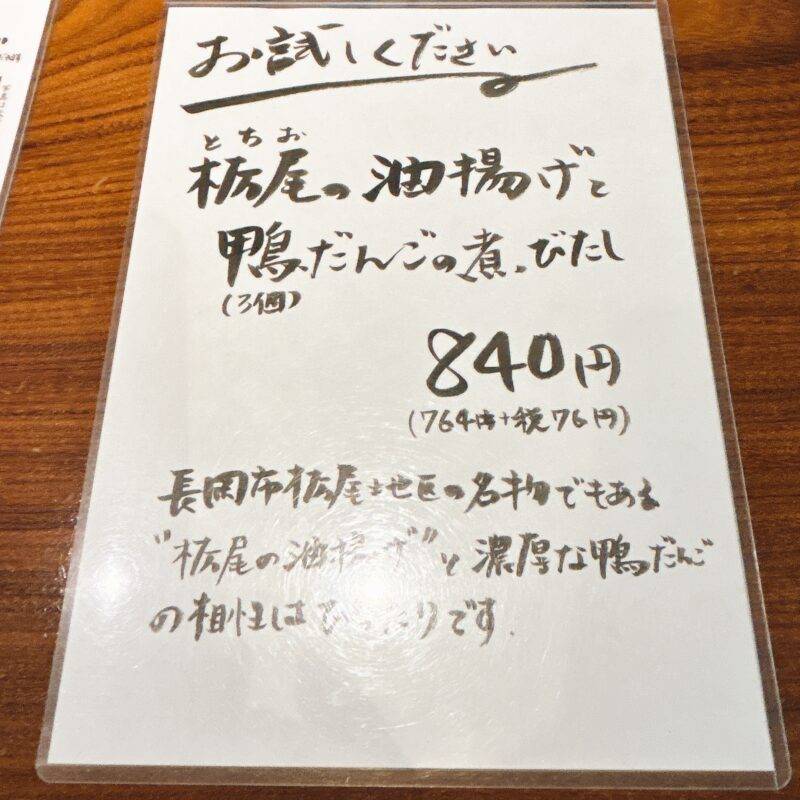 お試しください
とちお
栃尾の油揚げと
鴨だんごの煮びたし
(3個)
840円
(764円+税76円)
長岡市栃尾地区の名物でもある
"栃尾の油揚げ"と濃厚な鴨だんご
の相性はぴったりです.